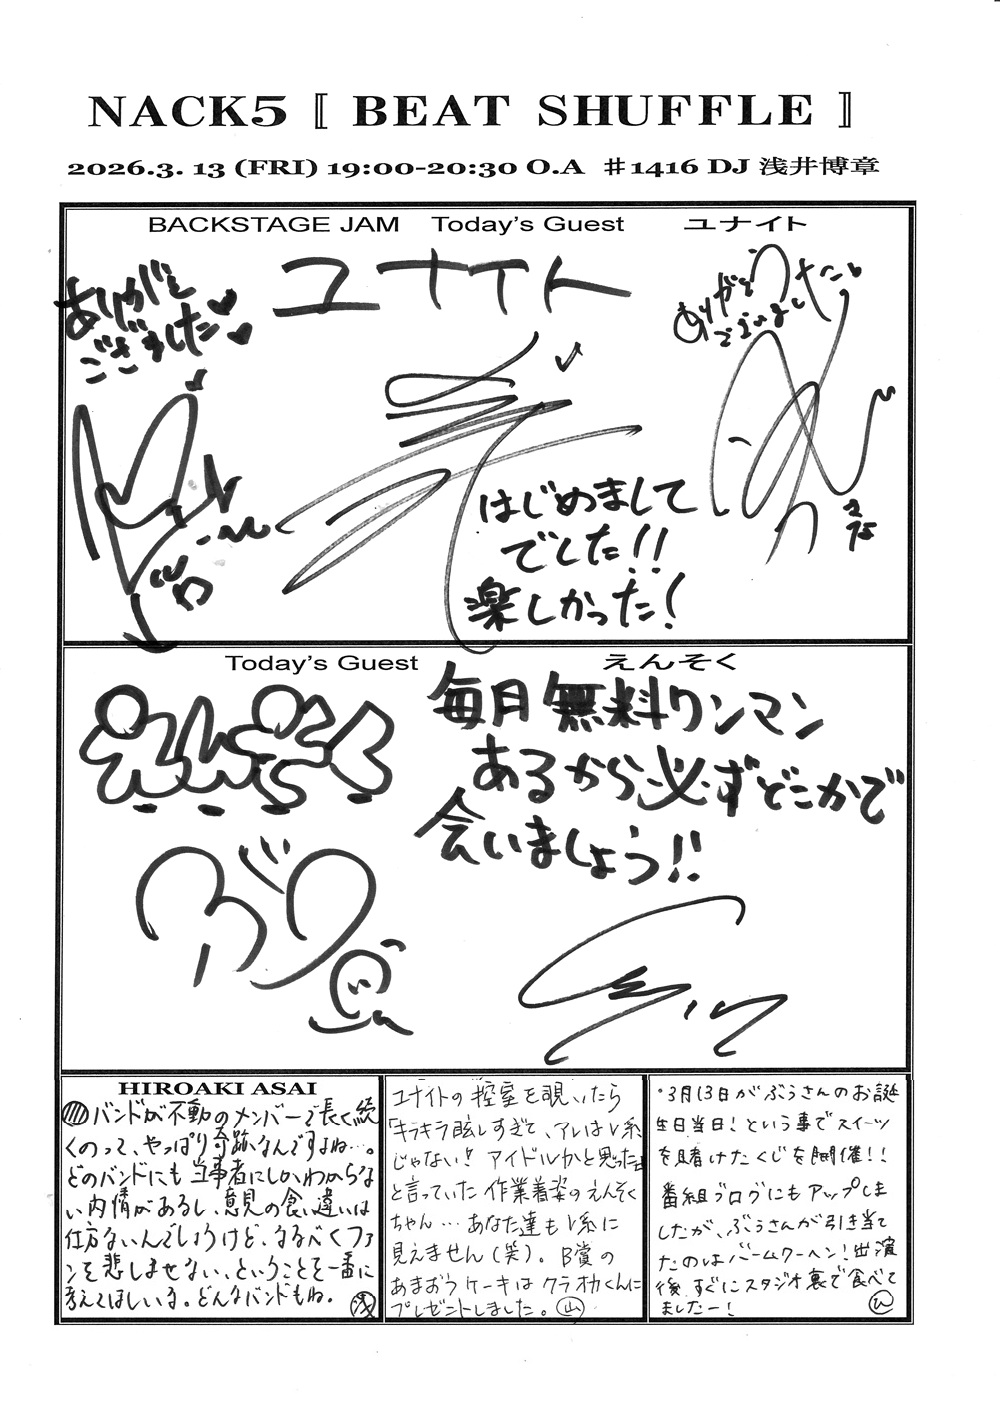 NACK5 〚 BEAT SHUFFLE 〛
2026.3. 13 (FRI) 19:00-20:30 O.A ♯1416 DJ 浅井博章
BACKSTAGE JAM Today's Guest ユナイト
ありがとう
ございました
ユナイト
ありがとう
ございました
はじめまして
でした!!
楽しかった!
Today's Guest えんそく
えんそく
毎日無料ワンマン
あるから必ずどこかで
会いましょう!!
ぶう
HIROAKI ASAI
バンドが不動のメンバーで長く続
くのって、やっぱり奇跡なんですよね…。
どのバンドにも当事者にしかわからな
い内情があるし、意見の食い違いは
仕方ないんでしょうけど、なるべくファ
ンを悲しませない、ということを一番に
考えてほしいな。どんなバンドもね。 浅
ユナイトの控室を覗いたら
「キラキラ眩しすぎて、アレはV系
じゃない!! アイドルかと思った」
と言っていた作業着姿のえんそく
ちゃん… あなた達もV系に
見えません(笑)。B賞の
あまおうケーキはクラオカくんに
プレゼントしました。 山
・3月13日がぶうさんのお誕
生日当日!という事でスイーツ
を賭けたくじを開催!!
番組ブログにもアップしま
したが、ぶうさんが引き当て
たのはバームクーヘン!出演
後すぐにスタジオ裏で食べて
ましたー! ひ